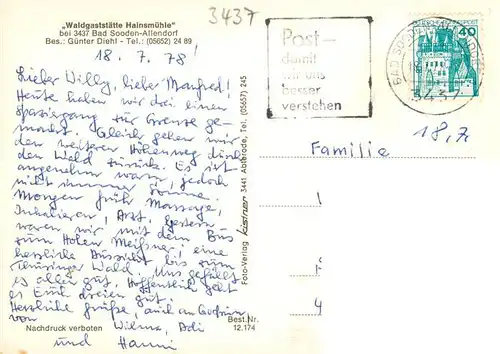 3437
„Waldgaststätte Hainsmühle"
bei 3437 Bad Sooden-Allendorf
Bes.: Günter Diehl - Tel.: (05652) 24 89
18. 7. 78!
Lieber Willy, lieber Manfred!
Heute haben wir drei einen
Spaziergang zur Grenze ge-
macht. Gleich gehen wir
den weiteren Höhenweg durch
den Wald zurück. Es ist
angenehm warm, jedoch
nicht immer Sonne.
Morgen früh Massage,
Inhalieren, Arzt, gestern
waren wir mit dem Bus
zum Hohen Meißner! eine
herrliche Aussicht bis zum
Thüringer Wald. Uns gefällt
es allen gut, Hoffentlich geht
es Euch dreien gut.
Herzliche Grüße, auch an
Wilma,
und Hanni
Nachdruck verboten
Best.Nr.
12.174
Foto-Verlag kistner 3441 Abterode, Tel. (05657) 245
Post –
damit
wir uns
besser
verstehen
BAD SOODEN-ALLENDORF
3437
40
18,7
Familie